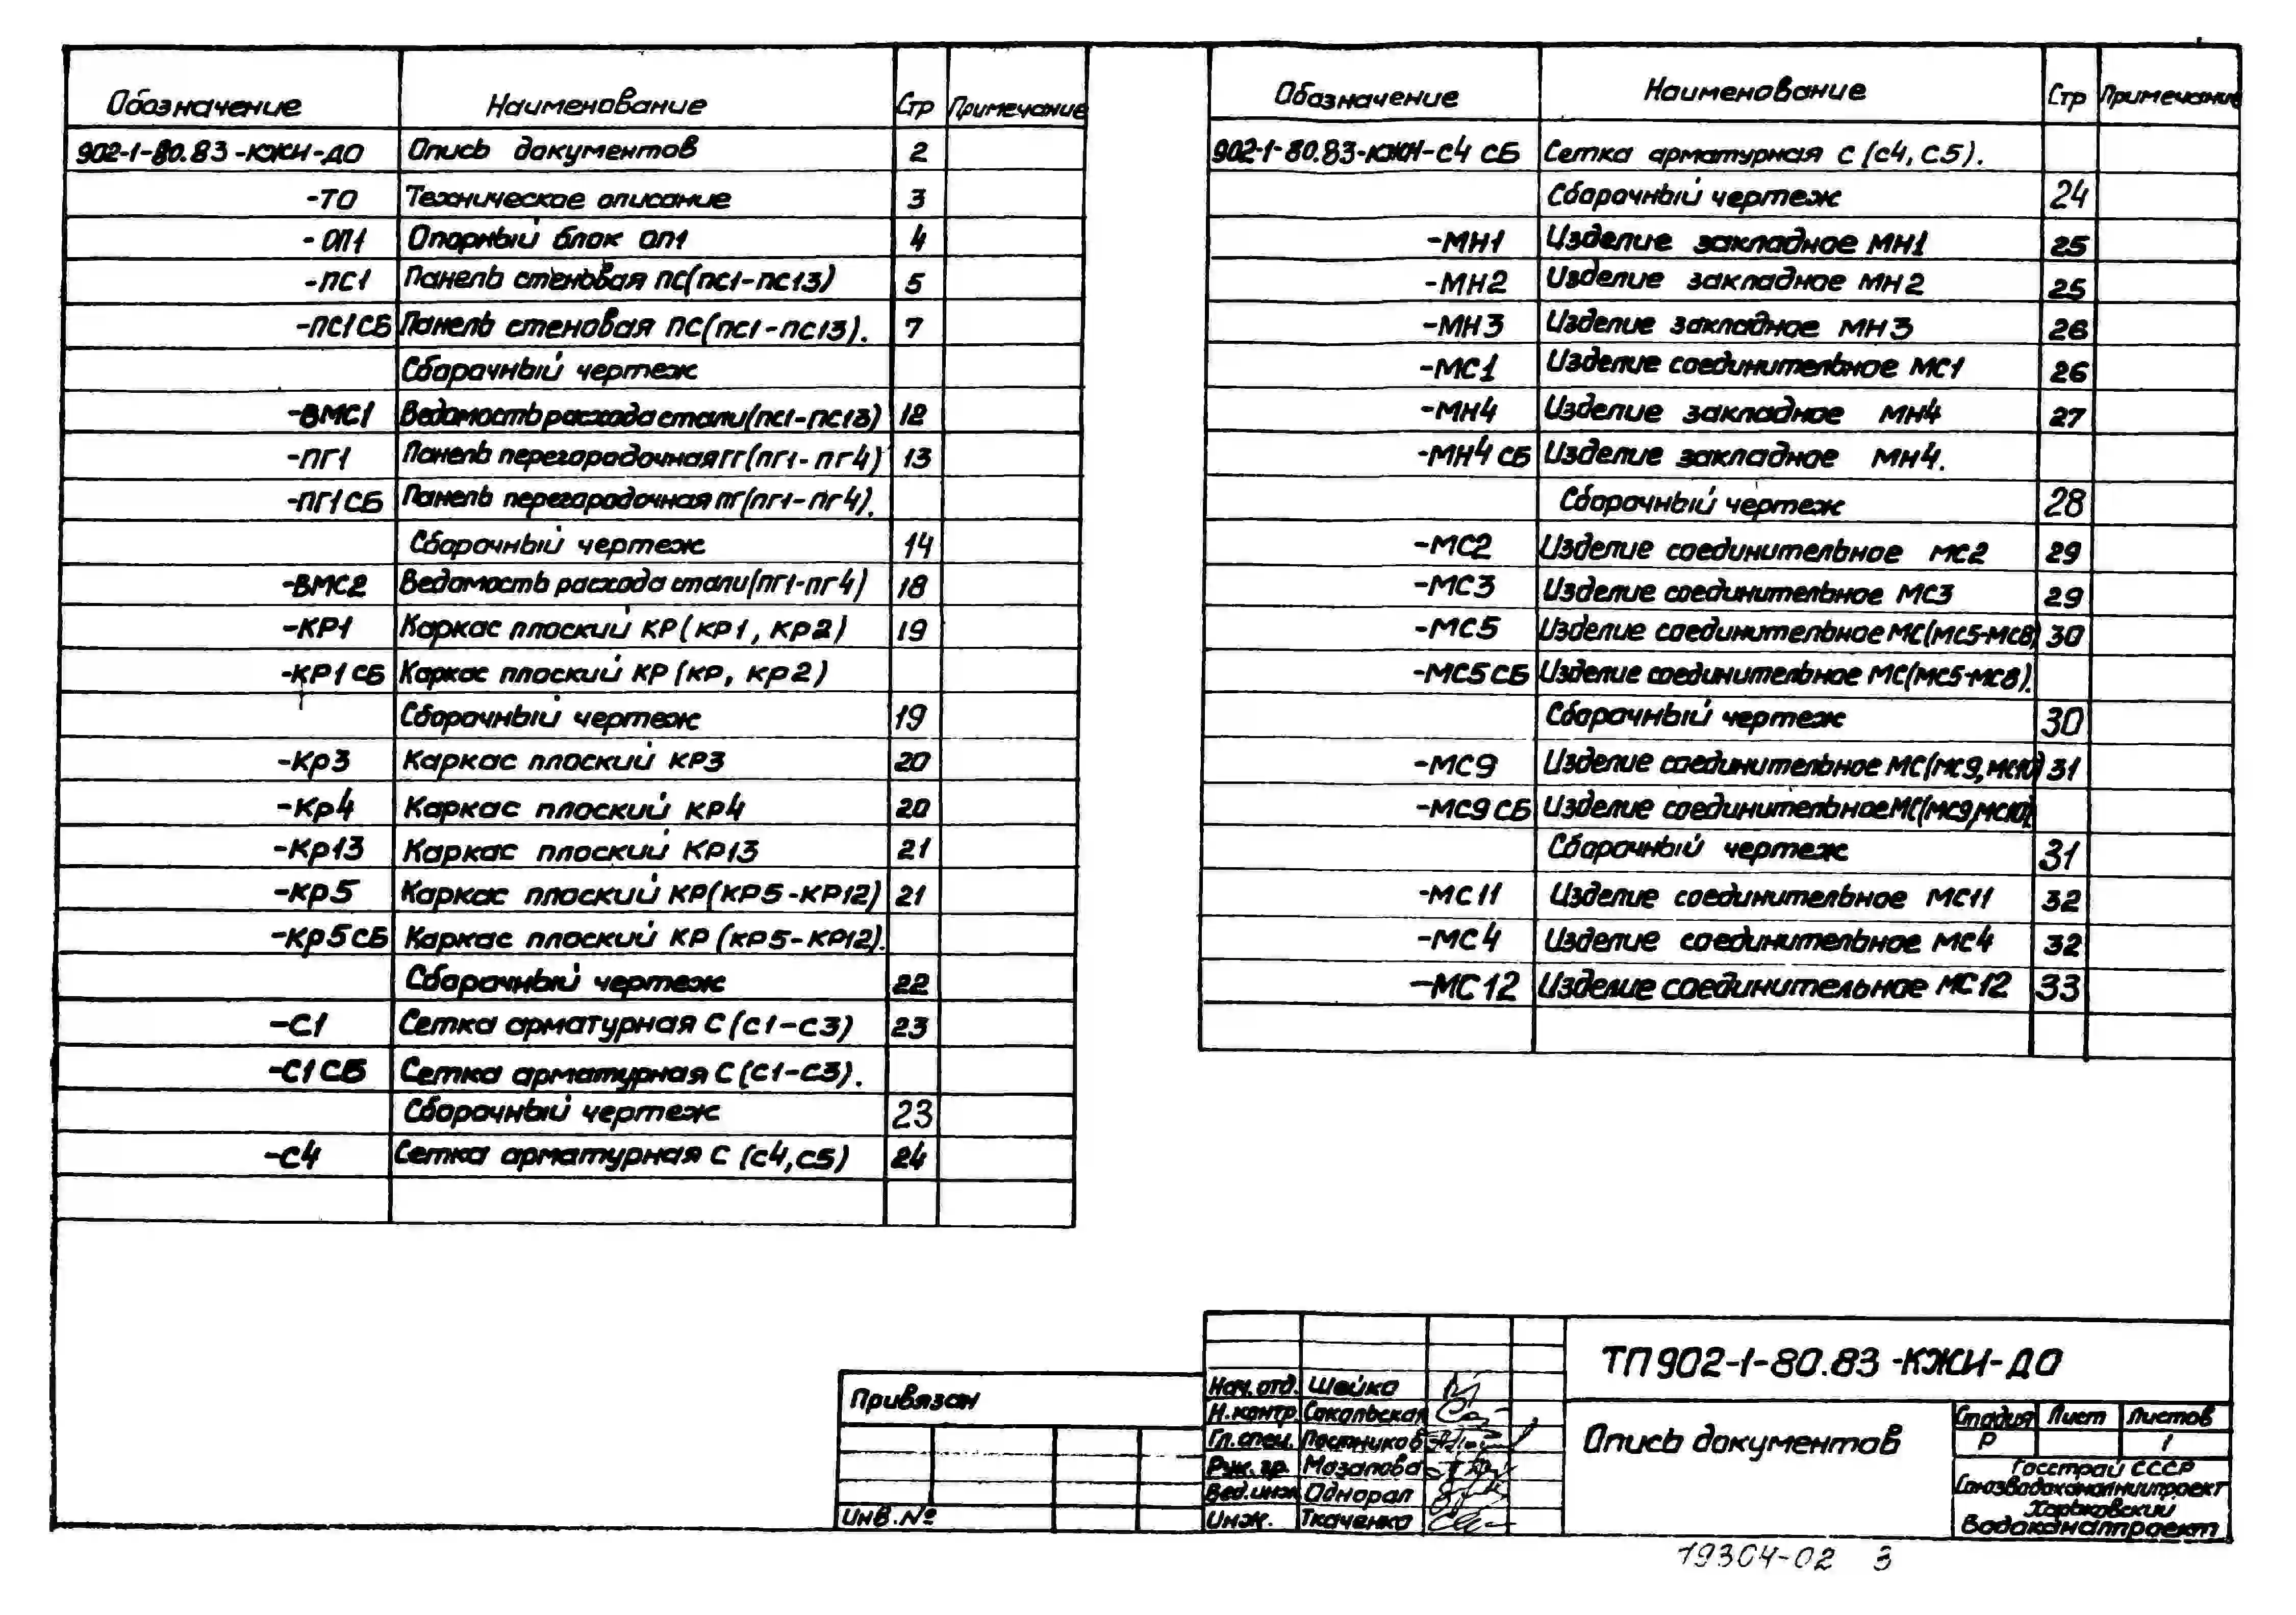 Обозначение Наименование Стр Примечание
902-1-80.83-КЖИ-ДО Опись документов 2
-ТО Техническое описание 3
-ОП1 Опорный блок ОП1 4
-ПС1 Панель стеновая ПС(ПС1-ПС13) 5
-ПС1СБ Панель стеновая ПС(ПС1-ПС13). 7
Сборочный чертеж
-ВМС1 Ведомость расхода стали(ПС1-ПС13) 12
-ПГ1 Панель перегородочная ПГ(ПГ1-ПГ4) 13
-ПГ1СБ Панель перегородочная ПГ(ПГ1-ПГ4).
Сборочный чертеж 14
-ВМС2 Ведомость расхода стали(ПГ1-ПГ4) 18
-КР1 Каркас плоский КР(КР1, КР2) 19
-КР1СБ Каркас плоский КР(КР, КР2)
Сборочный чертеж 19
-Кр3 Каркас плоский КР3 20
-Кр4 Каркас плоский КР4 20
-Кр13 Каркас плоский КР13 21
-Кр5 Каркас плоский КР(КР5-КР12) 21
-Кр5СБ Каркас плоский КР(КР5-КР12).
Сборочный чертеж 22
-С1 Сетка арматурная С(С1-С3) 23
-С1СБ Сетка арматурная С(С1-С3).
Сборочный чертеж 23
-С4 Сетка арматурная С(С4,С5) 24
Обозначение Наименование Стр Примечание
902-1-80.83-КЖИ-С4 СБ Сетка арматурная С(С4,С5).
Сборочный чертеж 24
-МН1 Изделие закладное МН1 25
-МН2 Изделие закладное МН2 25
-МН3 Изделие закладное МН3 26
-МС1 Изделие соединительное МС1 26
-МН4 Изделие закладное МН4 27
-МН4СБ Изделие закладное МН4.
Сборочный чертеж 28
-МС2 Изделие соединительное МС2 29
-МС3 Изделие соединительное МС3 29
-МС5 Изделие соединительное МС(МС5-МС8) 30
-МС5СБ Изделие соединительное МС(МС5-МС8).
Сборочный чертеж 30
-МС9 Изделие соединительное МС(МС9,МС10) 31
-МС9СБ Изделие соединительное МС(МС9,МС10).
Сборочный чертеж 31
-МС11 Изделие соединительное МС11 32
-МС4 Изделие соединительное МС4 32
-МС12 Изделие соединительное МС12 33
Привязан
Инв.№
Нач.отд. Шейко
Н.контр. Сокольская
Гл.спец. Постников
Рук.гр. Мазалова
Вед.инж Однорал
Инж. Ткаченко
ТП902-1-80.83-КЖИ-ДО
Опись документов
Стадия Лист Листов
Р 1
Госстрой СССР
Союзводоканалниипроект
Харьковский
Водоканалпроект
19304-02 3